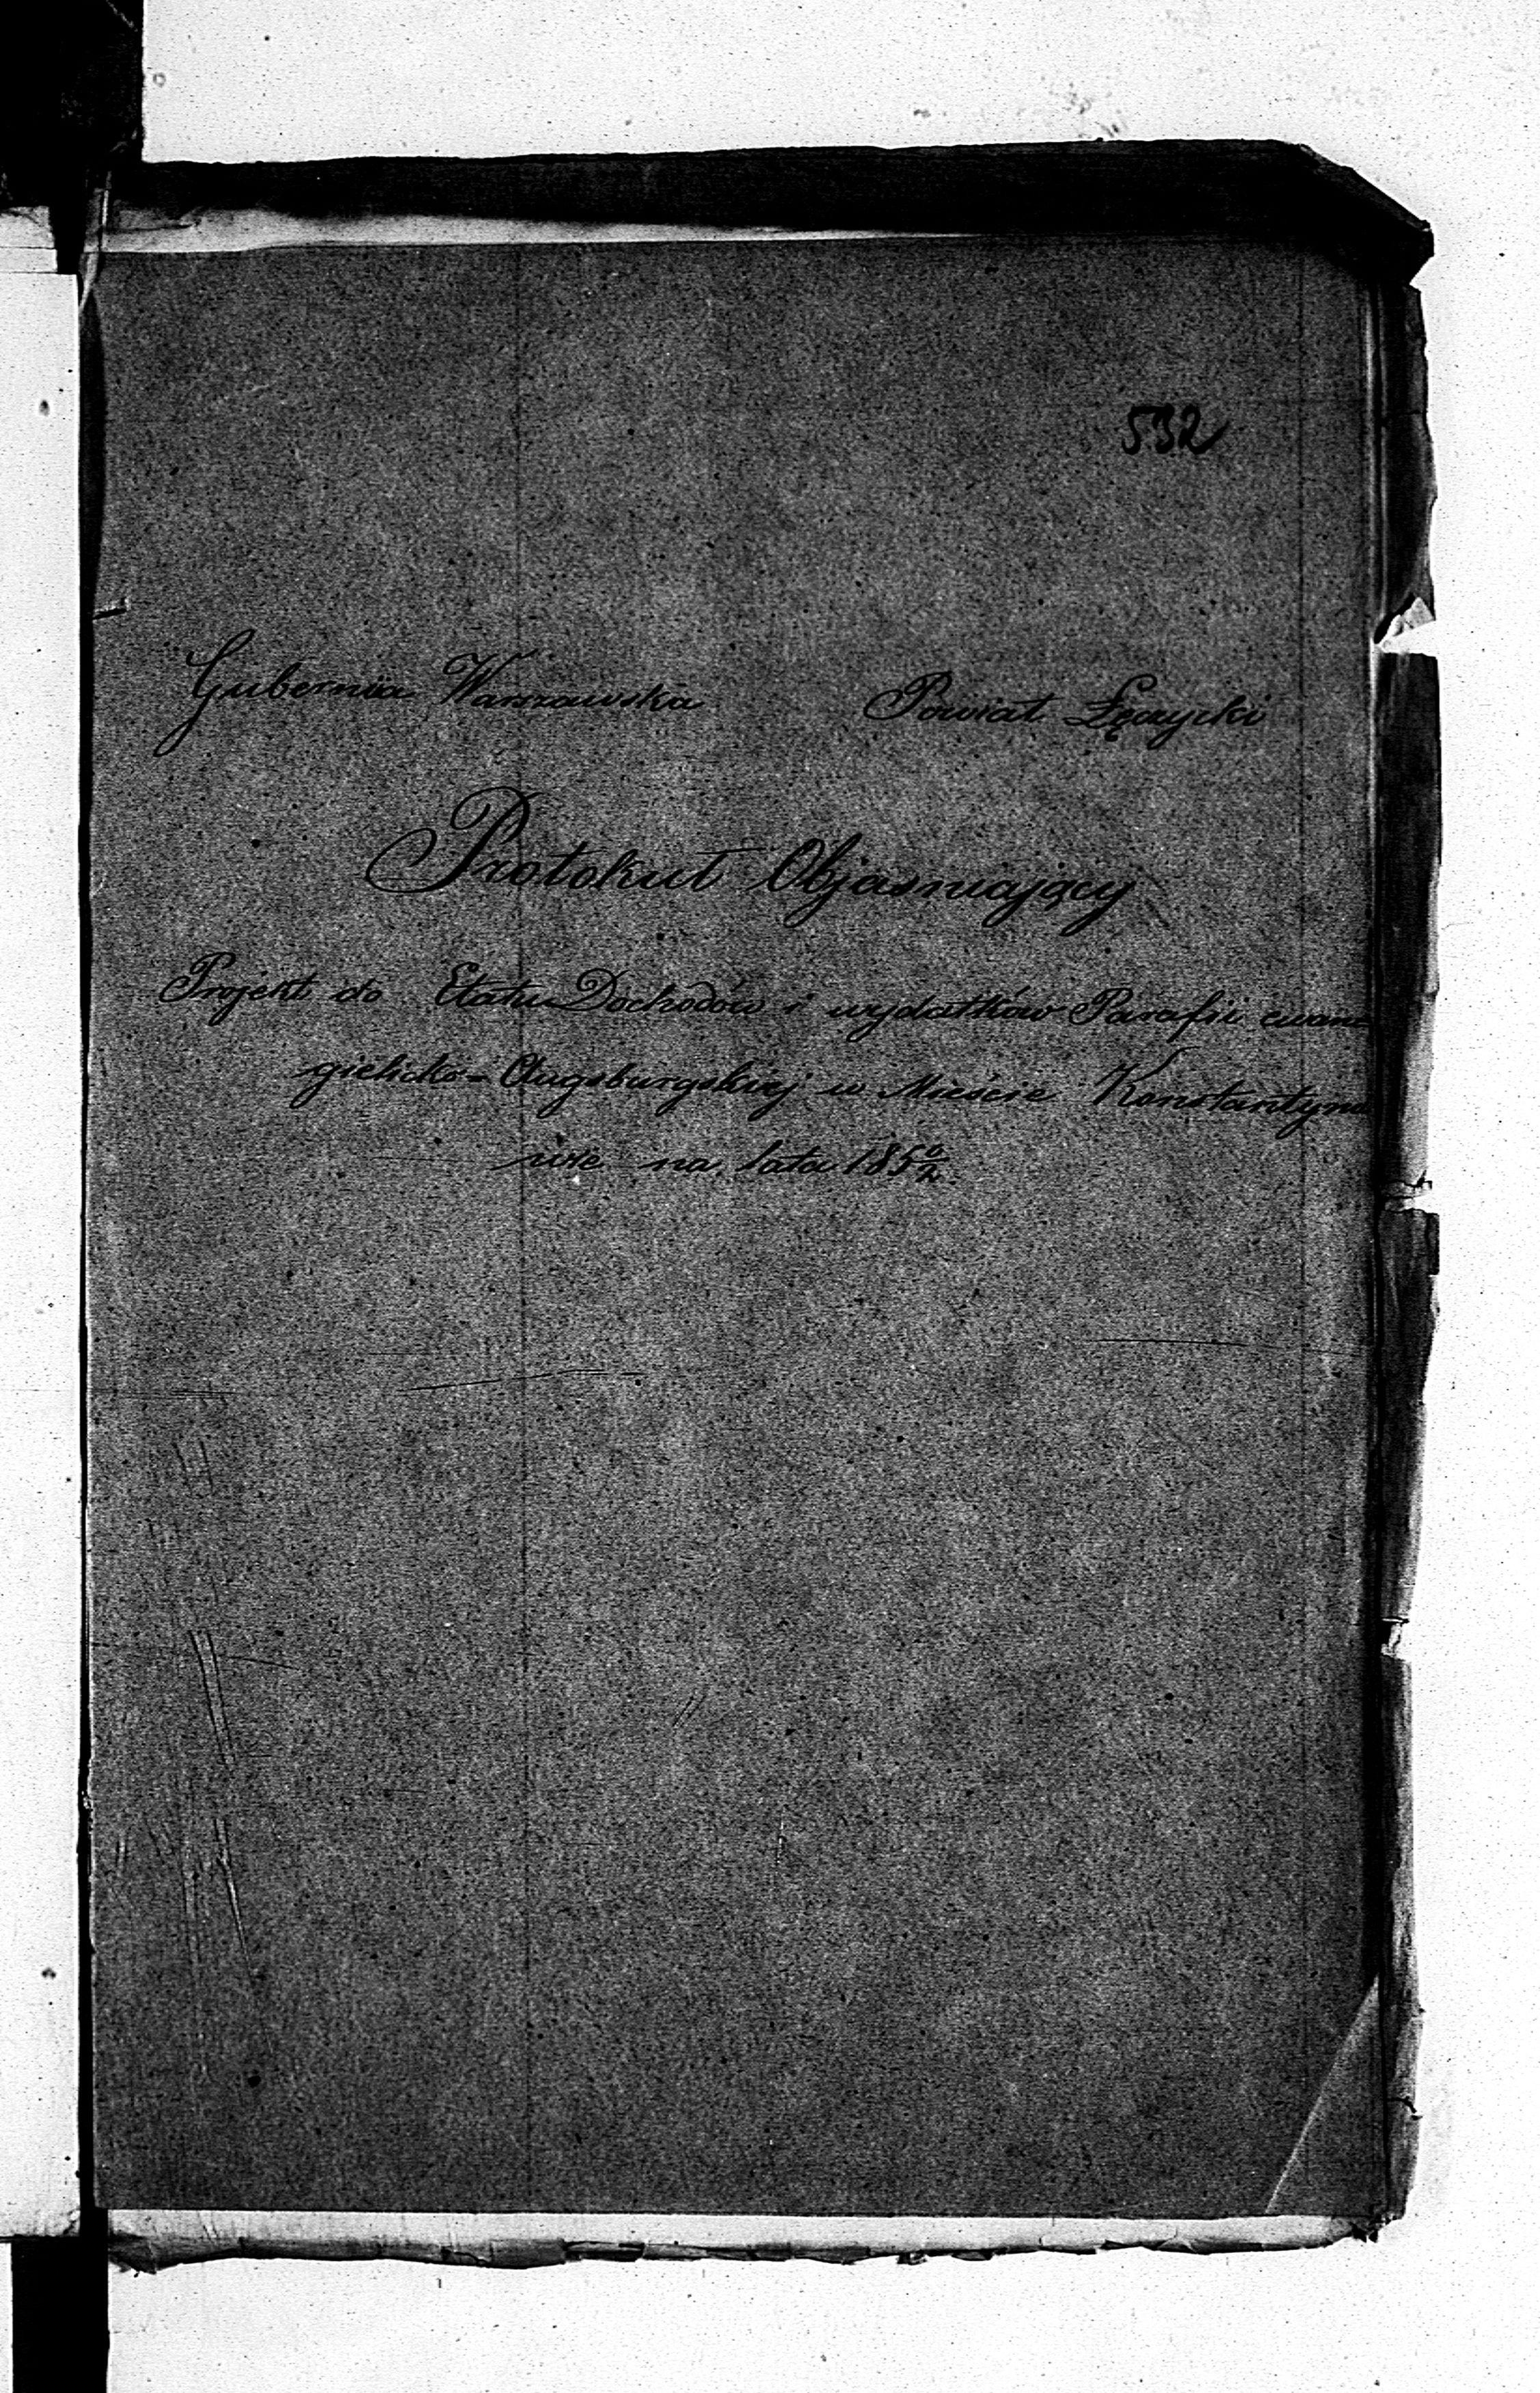 532
Gubernia Warszawska Powiat Łęczycki
Protokuł Objasniający
Projekt do Etatu Dochodów i wydatków Parafii ewan=
gielicko=Augsburgskiej w Mieście Konstantyno
wie na lata 185 0/2.